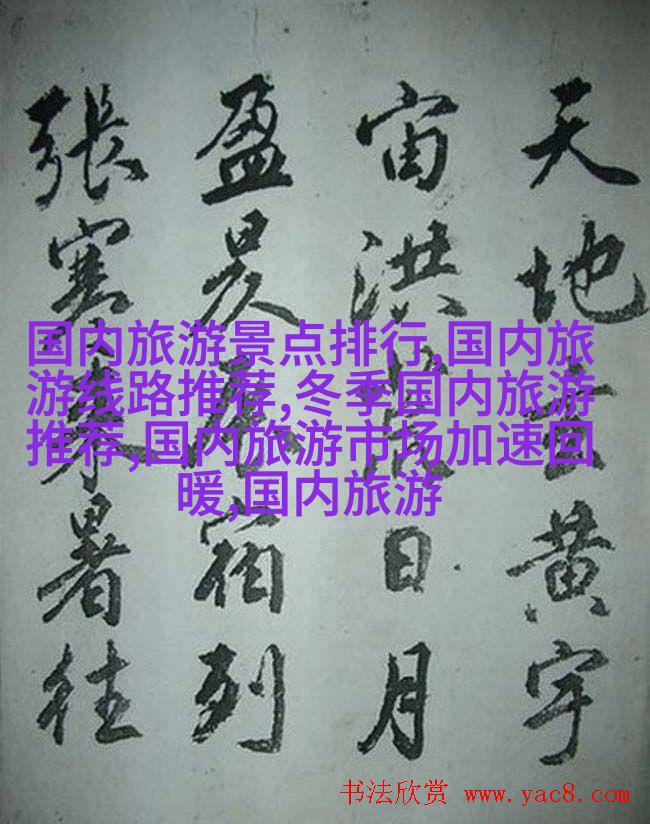 天地玄黄宇
宙洪荒日月
盈昃辰宿列
張寒来暑往
国内旅游景点排行,国内旅
游线路推荐,冬季国内旅游
推荐,国内旅游市场加速回
暖,国内旅游
书法欣赏 www.yac8.com